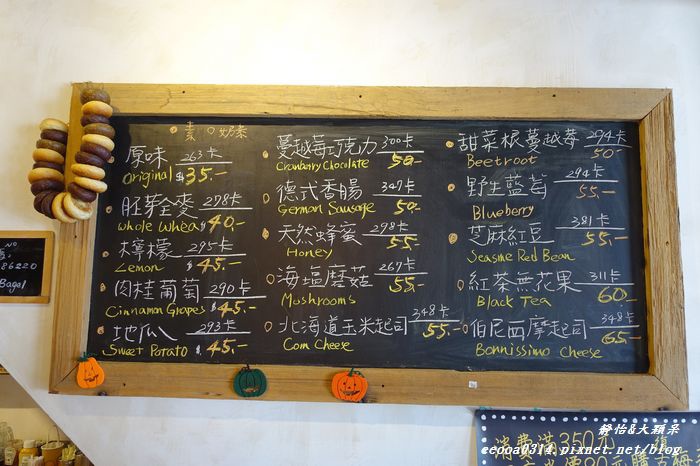 素 奶素
原味 263卡
Original $35.-
胚芽全麥 278卡
Whole Wheat $40.-
檸檬 295卡
Lemon $45.-
肉桂葡萄 290卡
Cinnamon Grapes $45.-
地瓜 293卡
Sweet Potato $45.-
蔓越莓巧克力 300卡
Cranberry Chocolate 50.-
德式香腸 347卡
German Sausage 50.-
天然蜂蜜 298卡
Honey 55.-
海塩蘑菇 267卡
Mushrooms 55.-
北海道玉米起司 348卡
Corn Cheese 55.-
甜菜根蔓越莓 294卡
Beetroot 50.-
野生藍莓 294卡
Blueberry 55.-
芝麻紅豆 381卡
Seasme Red Bean 55.-
紅茶無花果 311卡
Black Tea 60.-
伯尼西摩起司 348卡
Bonnissimo Cheese 65.-
NO
86220
Bagel
消費滿350元
靜怡&大顆呆
ecoca0314.pixnet.net/blog